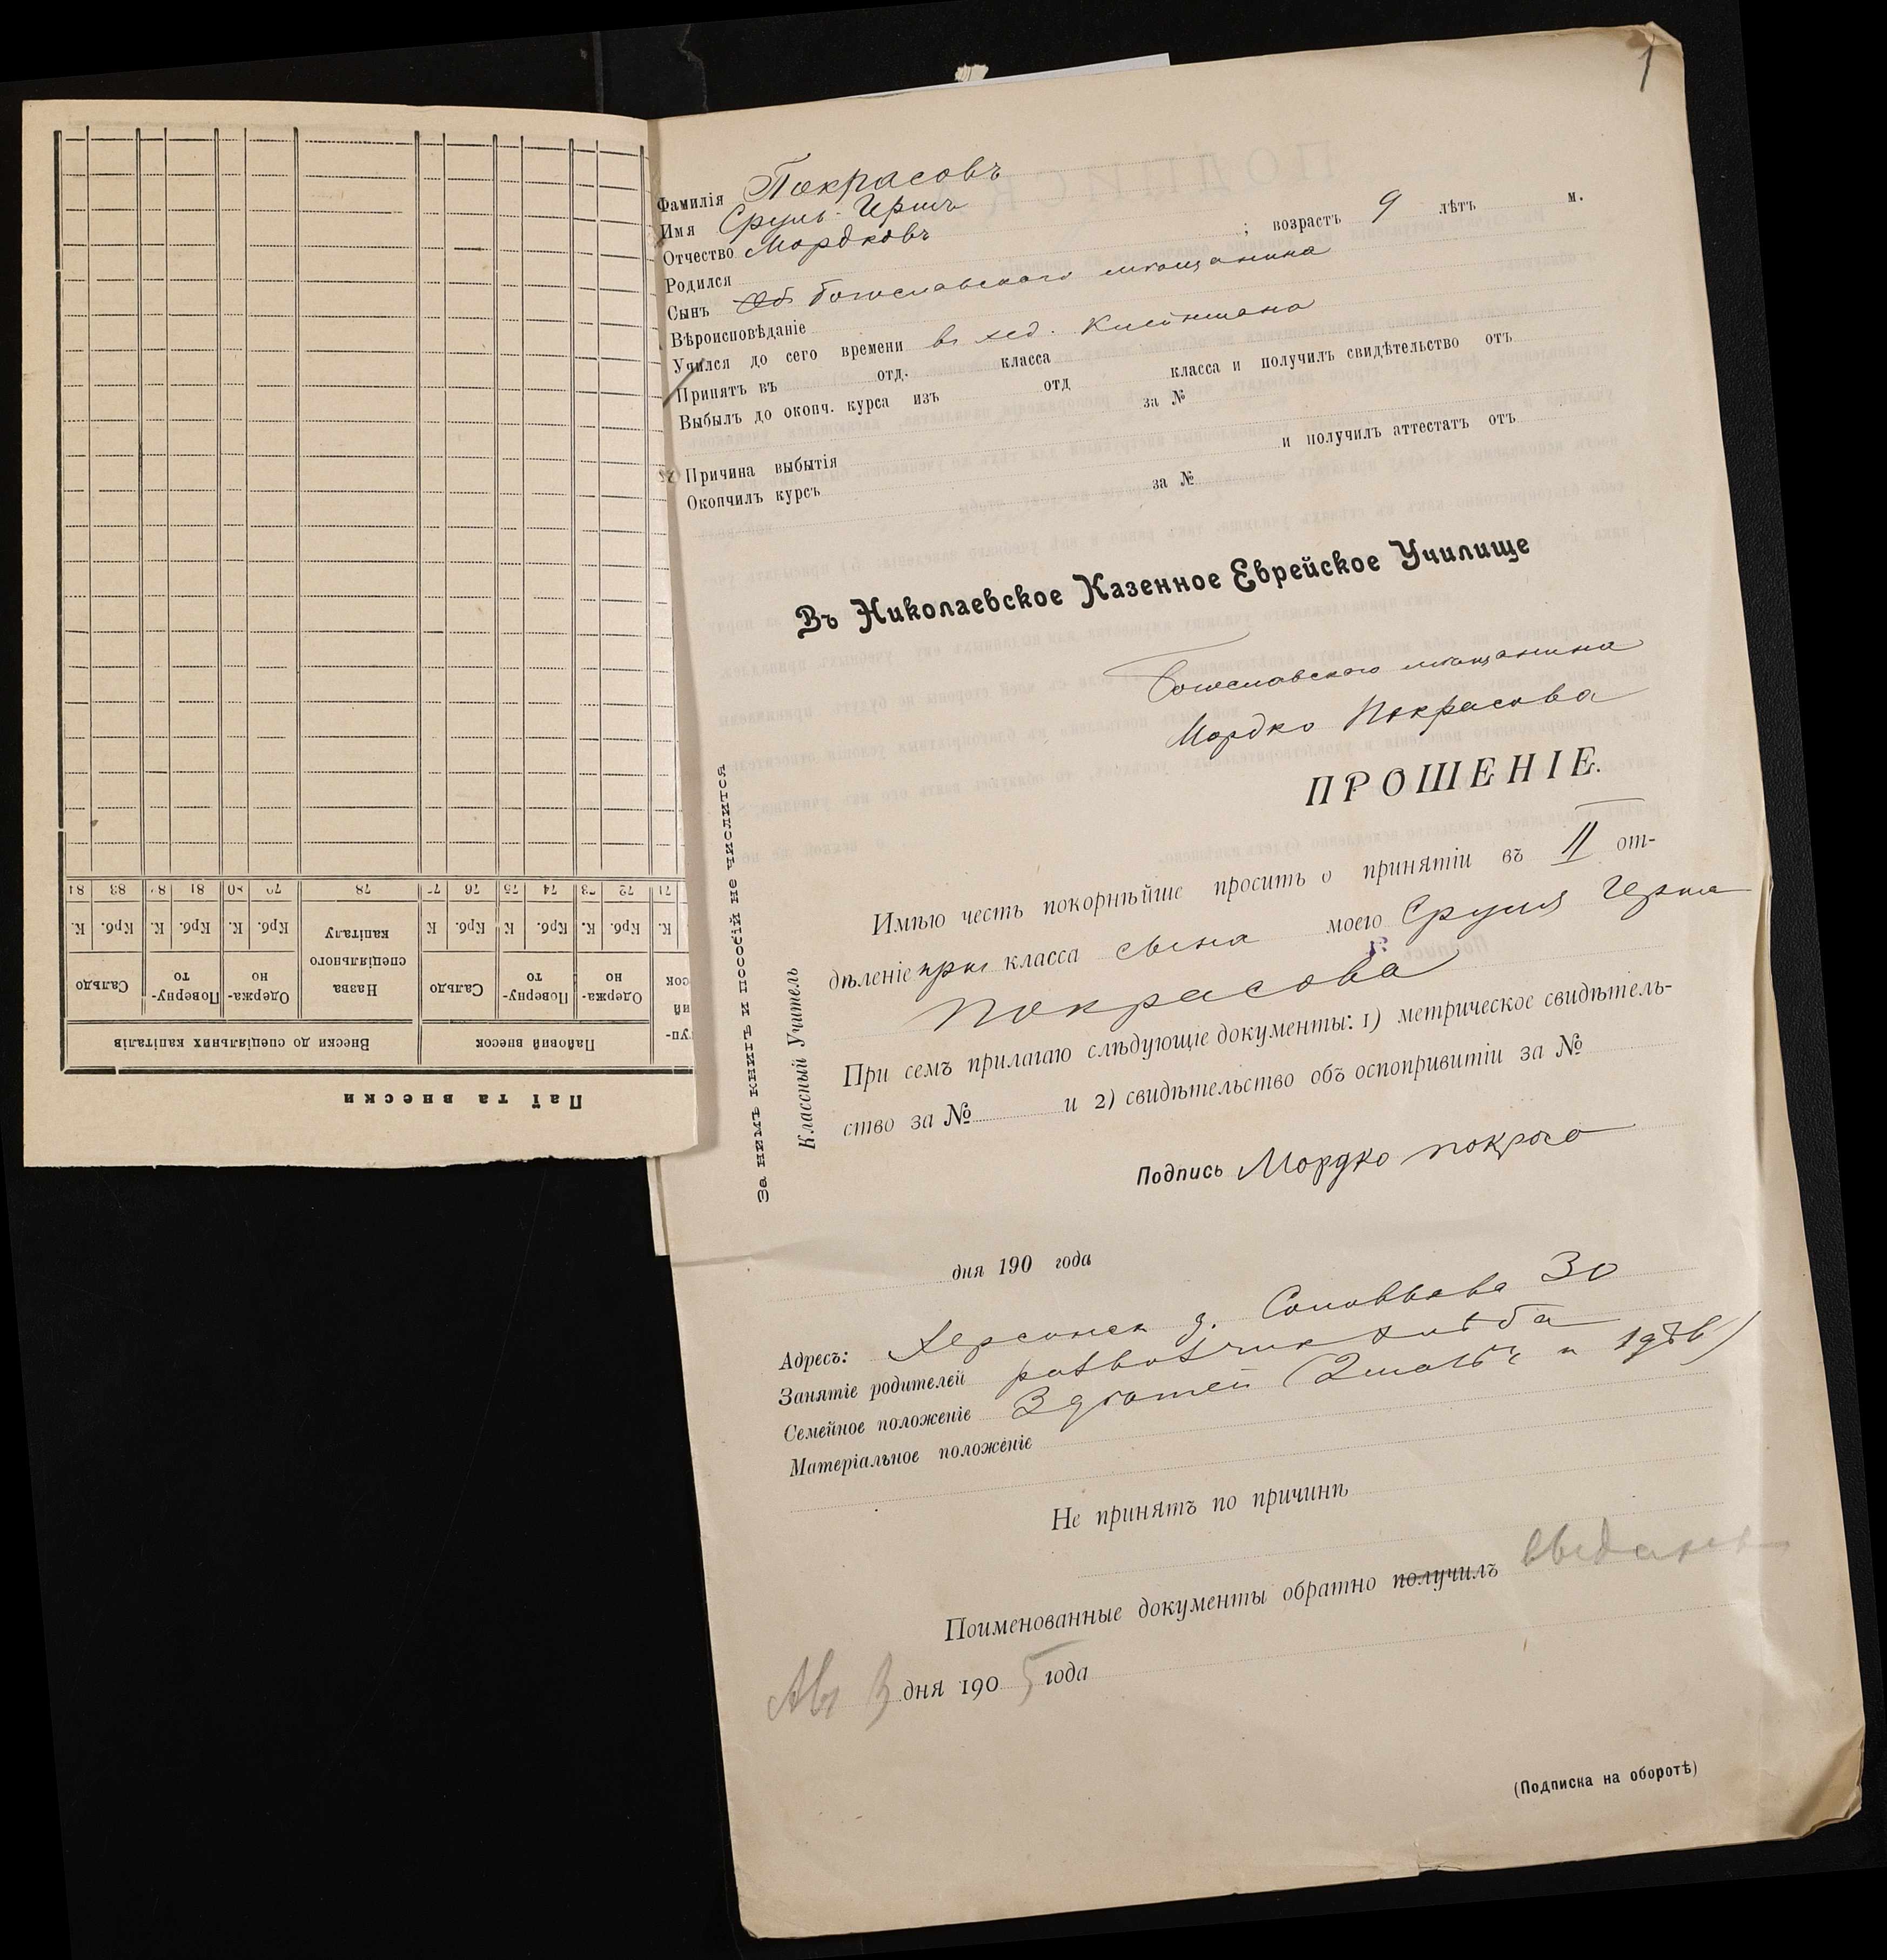 1
Фамилія Покрасовъ
Имя Сруль-Гершъ
Отчество Мордковъ ; возрастъ 9 лѣтъ м.
Родился
Сынъ Богославского мѣщанина
Вѣроисповѣданіе
Учился до сего времени въ хед. Клейнмана
Принятъ въ отд. класса
Выбылъ до оконч. курса изъ отд класса и получилъ свидѣтельство отъ
за №
Причина выбытія
Окончилъ курсъ и получилъ аттестатъ отъ
за №
Въ Николаевское Казенное Еврейское Училище
Богославского мѣщанина
Мордко Покрасова
ПРОШЕНІЕ.
Имѣю честь покорнѣйше просить о принятіи въ II от-
дѣленіе приг класса сына моего Сруля Герша
Покрасова
При семъ прилагаю слѣдующіе документы: 1) метрическое свидѣтель-
ство за № и 2) свидѣтельство объ оспопривитіи за №
Подпись Мордко покраса
дня 190 года
Адресъ: Херсонск д. Соловьева 30
Занятіе родителей развозчик хлѣба
Семейное положеніе 3 дѣтей (2 мальч и 1 дѣв)
Матеріальное положеніе
Не принятъ по причинѣ
Поименованные документы обратно получилъ
Авг 3 дня 1905 года
(Подписка на оборотѣ)
За нимъ книгъ и пособій не числится
Классный Учитель
Паї та внески
Пайовий внесок
Внески до спеціяльних капіталів
Одержа-
но
Поверну-
то
Сальдо
Назва
спеціяльного
капіталу
Одержа-
но
Поверну-
то
Сальдо
К. Крб. К. Крб. К Крб. К Крб. К. Крб. К. Крб. К.
71 72 73 74 75 76 77 78 79 80 81 82 83 84